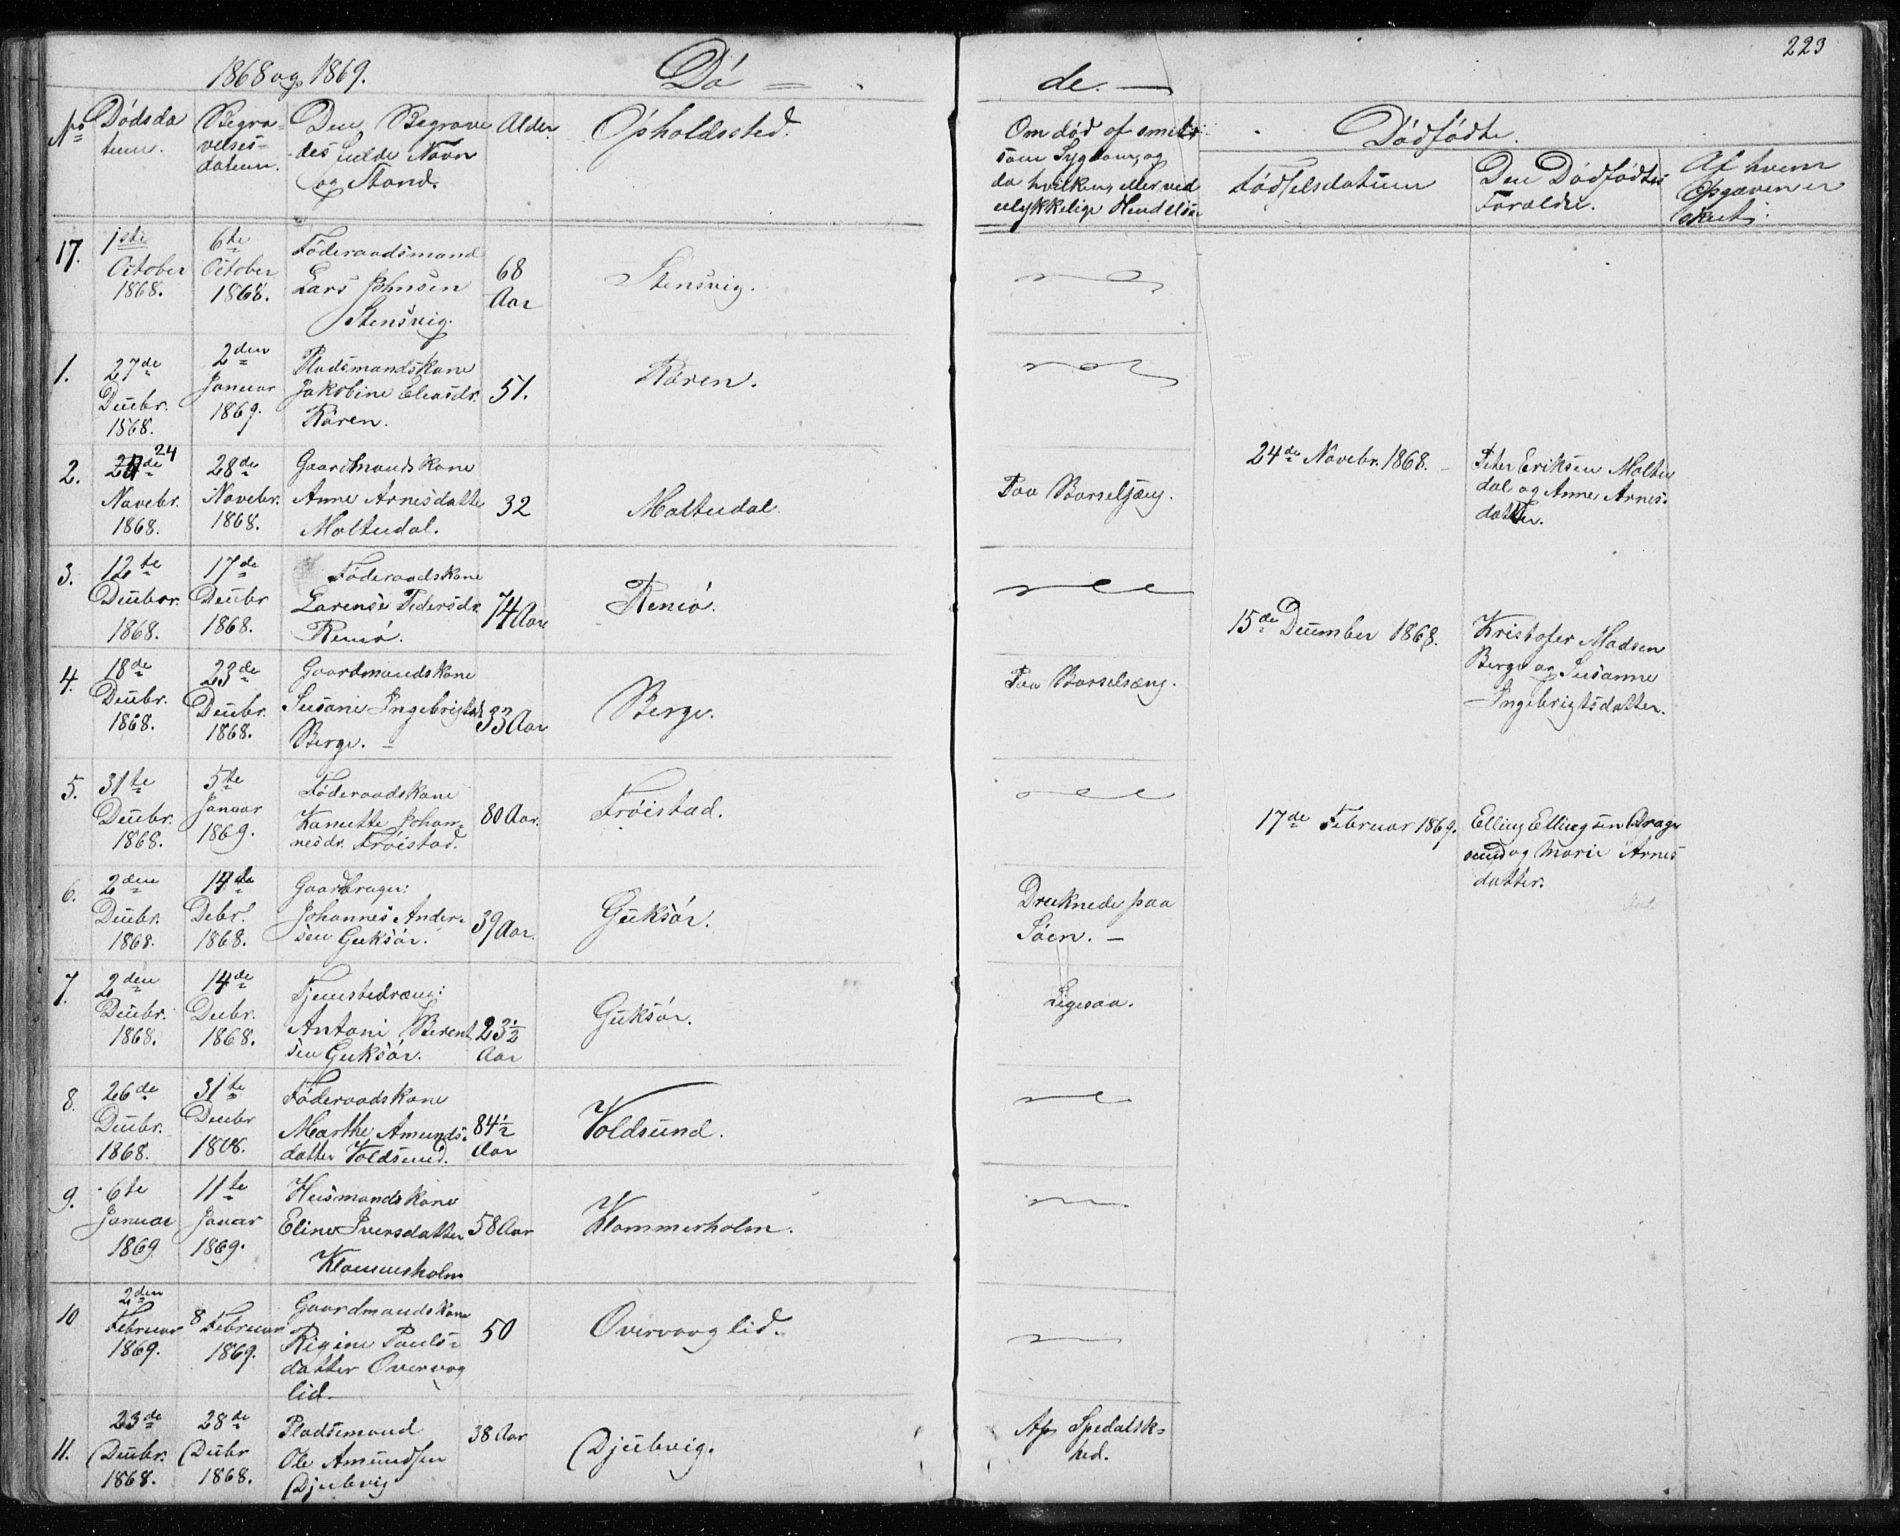 223
1868 og 1869. Dø = de. —
No Dødsda
tum.
Begra=
velses=
datum.
Den Begrave
des fulde Navn
og Stand.
Alder
Opholdssted.
Om død af smit
som Sygdom, og
da hvilken, eller ved
ulykkelige Hendelser
Dødfødte.
Fødselsdatum
Den Dødfødtes
Forældre.
Af hvem
Opgaven er
skeet.
17. 1ste
October
1868.
6te
October
1868.
Føderaadsmand
Lars Johnsen
Stensvig.
68
Aar
Stensvig.
1. 27de
Decbr.
1868.
2den
Januar
1869.
Pladsmandskone
Jakobine Eliasdr.
Røren.
51.
Røren.
2. 24de 24
Novebr.
1868.
28de
Novebr.
1868.
Gaardmandskone
Anne Arnesdatte
Moltudal.
32
Moltudal
Paa Barselsæng.
24de Novebr. 1868.
Peter Eriksen Moltu
dal og Anne Arnes-
datter.
3. 12te
Decbr.
1868.
17de
Decbr
1868.
Føderaadskone
Larense Pedersdr.
Remø.
74 Aar
Remø.
15de December 1868.
Kristofer Madsen
Berge og Susanne
Ingebrigtsdatter.
4. 18de
Decbr.
1868.
23de
Decbr.
1868.
Gaardmandskone
Susane Ingebrigtsd.
Berge. —
33 Aar
Berge.
Paa Barselsæng.
5. 31te
Decbr.
1868.
5te
Januar
1869.
Føderaadskone
Kanutte Johan-
nesdr. Frøistad.
80 Aar.
Frøistad.
17de Februar 1869.
Elling Ellingsen Drage
sund og Marie Arnes
datter.
6. 2den
Decbr.
1868.
14de
Debr.
1868.
Gaardbruger:
Johannes Ander-
sen Gurksør.
39 Aar.
Gurksør.
Druknede paa
Søen. —
7. 2den
Decbr.
1868.
14de
Decbr.
1868.
Tjenestedreng:
Antoni Berent
sen Gurksør.
23½
Aar
Gurksør.
Ligesaa.
8. 26de
Decbr.
1868.
31te
Decbr
1868.
Føderaadskone
Marthe Amunds-
datter Voldsund.
84½
Aar
Voldsund.
9. 6te
Januar
1869
11te
Januar
1869.
Husmandskone
Eline Iversdatter
Klommerholm
58 Aar
Klommerholm.
10 2den
Februar
1869.
8 Februar
1869.
Gaardmandskone
Rigine Pauls=
datter Overvog
lid.
50
Overvaaglid.
11. 23de
Decbr.
1868.
28de
Decbr
1868.
Pladsmand
Ole Amundsen
Djubvig
38 Aar
Djubvig.
Af Spedalsk=
hed.